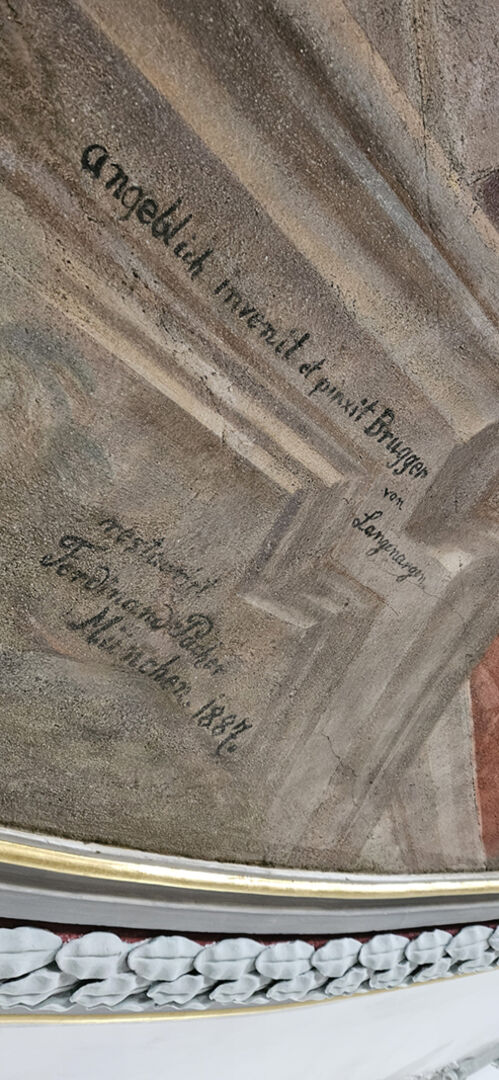 angeblich invenit et pinxit Brugger
von
Langenargen.
restavrirt
Ferdinand Pacher
München. 1887.